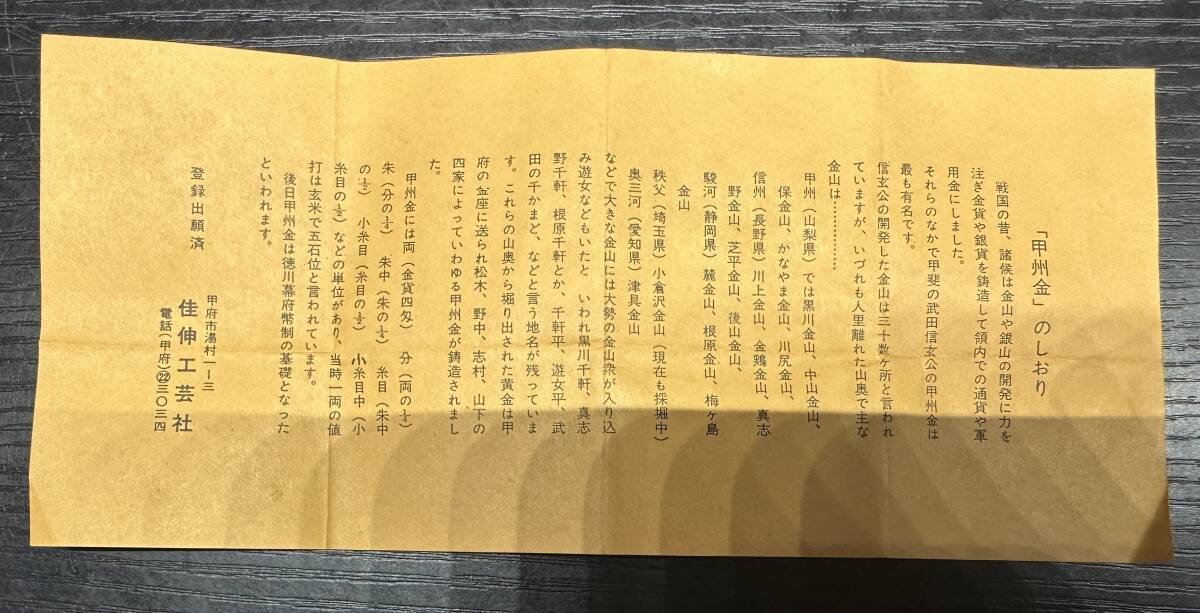 「甲州金」のしおり
戦国の昔、諸候は金山や銀山の開発に力を
注ぎ金貨や銀貨を鋳造して領内での通貨や軍
用金にしました。
それらのなかで甲斐の武田信玄公の甲州金は
最も有名です。
信玄公の開発した金山は三十数ヶ所と言われ
ていますが、いづれも人里離れた山奥で主な
金山は…………
甲州(山梨県)では黒川金山、中山金山、
保金山、かなやま金山、川尻金山、
信州(長野県)川上金山、金鶏金山、真志
野金山、芝平金山、後山金山、
駿河(静岡県)麓金山、根原金山、梅ヶ島
金山
秩父(埼玉県)小倉沢金山(現在も採堀中)
奥三河(愛知県)津具金山
などで大きな金山には大勢の金山衆が入り込
み遊女などもいたと いわれ黒川千軒、真志
野千軒、根原千軒とか、千軒平、遊女平、武
田の千かまど、などと言う地名が残っていま
す。これらの山奥から堀り出された黄金は甲
府の金座に送られ松木、野中、志村、山下の
四家によっていわゆる甲州金が鋳造されまし
た。
甲州金には両(金貨四匁) 分(両の¼)
朱(分の¼) 朱中(朱の½) 糸目(朱中
の½) 小糸目(糸目の½) 小糸目中(小
糸目の½)などの単位があり、当時一両の値
打は玄米で五石位と言われています。
後日甲州金は徳川幕府幣制の基礎となった
といわれます。
登録出願済
甲府市湯村一ー三
佳伸工芸社
電話(甲府)㉒三〇三四